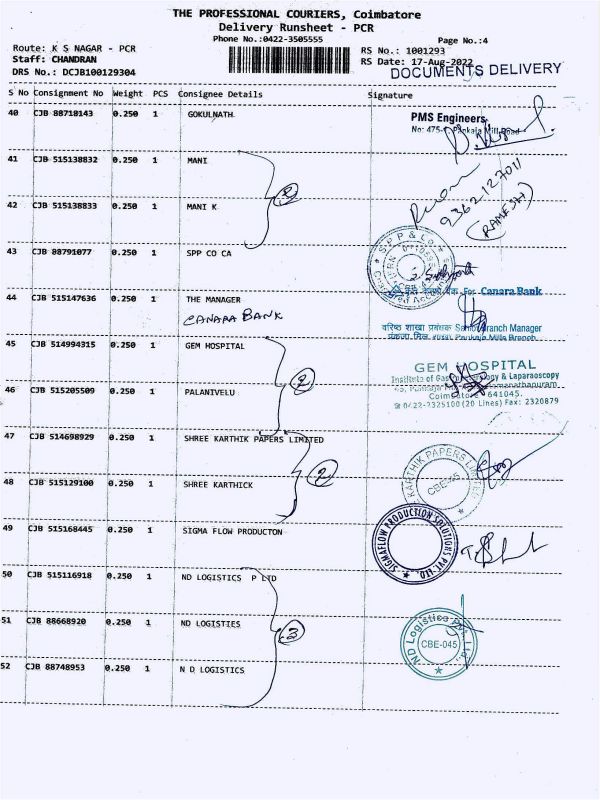 THE PROFESSIONAL COURIERS, Coimbatore
Delivery Runsheet - PCR
Phone No.:0422-3505555
Page No.:4
Route: K S NAGAR - PCR
RS No.: 1001293
Staff: CHANDRAN
RS Date: 17-Aug-2022
DRS No.: DCJB100129304
DOCUMENTS DELIVERY
S No Consignment No Weight PCS Consignee Details Signature
40 CJB 88718143 0.250 1 GOKULNATH
PMS Engineers
No: 475-
Pankaja Mill Road
41 CJB 515138832 0.250 1 MANI
2
9362127011
(RAMESH)
42 CJB 515138833 0.250 1 MANI K
43 CJB 88791077 0.250 1 SPP CO CA
S.P.P & Co.
For Canara Bank
44 CJB 515147636 0.250 1 THE MANAGER
CANARA BANK
वरिष्ठ शाखा प्रबंधक Senior Branch Manager
Pankaja Mills Branch
45 CJB 514994315 0.250 1 GEM HOSPITAL
2
GEM HOSPITAL
Institute of Gastroenterology & Laparoscopy
Coimbatore - 641045.
0422-2325100 (20 Lines) Fax: 2320879
46 CJB 515205509 0.250 1 PALANIVELU
47 CJB 514698929 0.250 1 SHREE KARTHIK PAPERS LIMITED
2
KARTHIK PAPERS LIMITED
CBE-45
48 CJB 515129100 0.250 1 SHREE KARTHICK
49 CJB 515168445 0.250 1 SIGMA FLOW PRODUCTON
SIGMAFLOW PRODUCTION SOLUTIONS PVT. LTD.
50 CJB 515116918 0.250 1 ND LOGISTICS P LTD
51 CJB 88668920 0.250 1 ND LOGISTIES
3
ND Logistics Pvt. Ltd.,
CBE-045
52 CJB 88748953 0.250 1 N D LOGISTICS